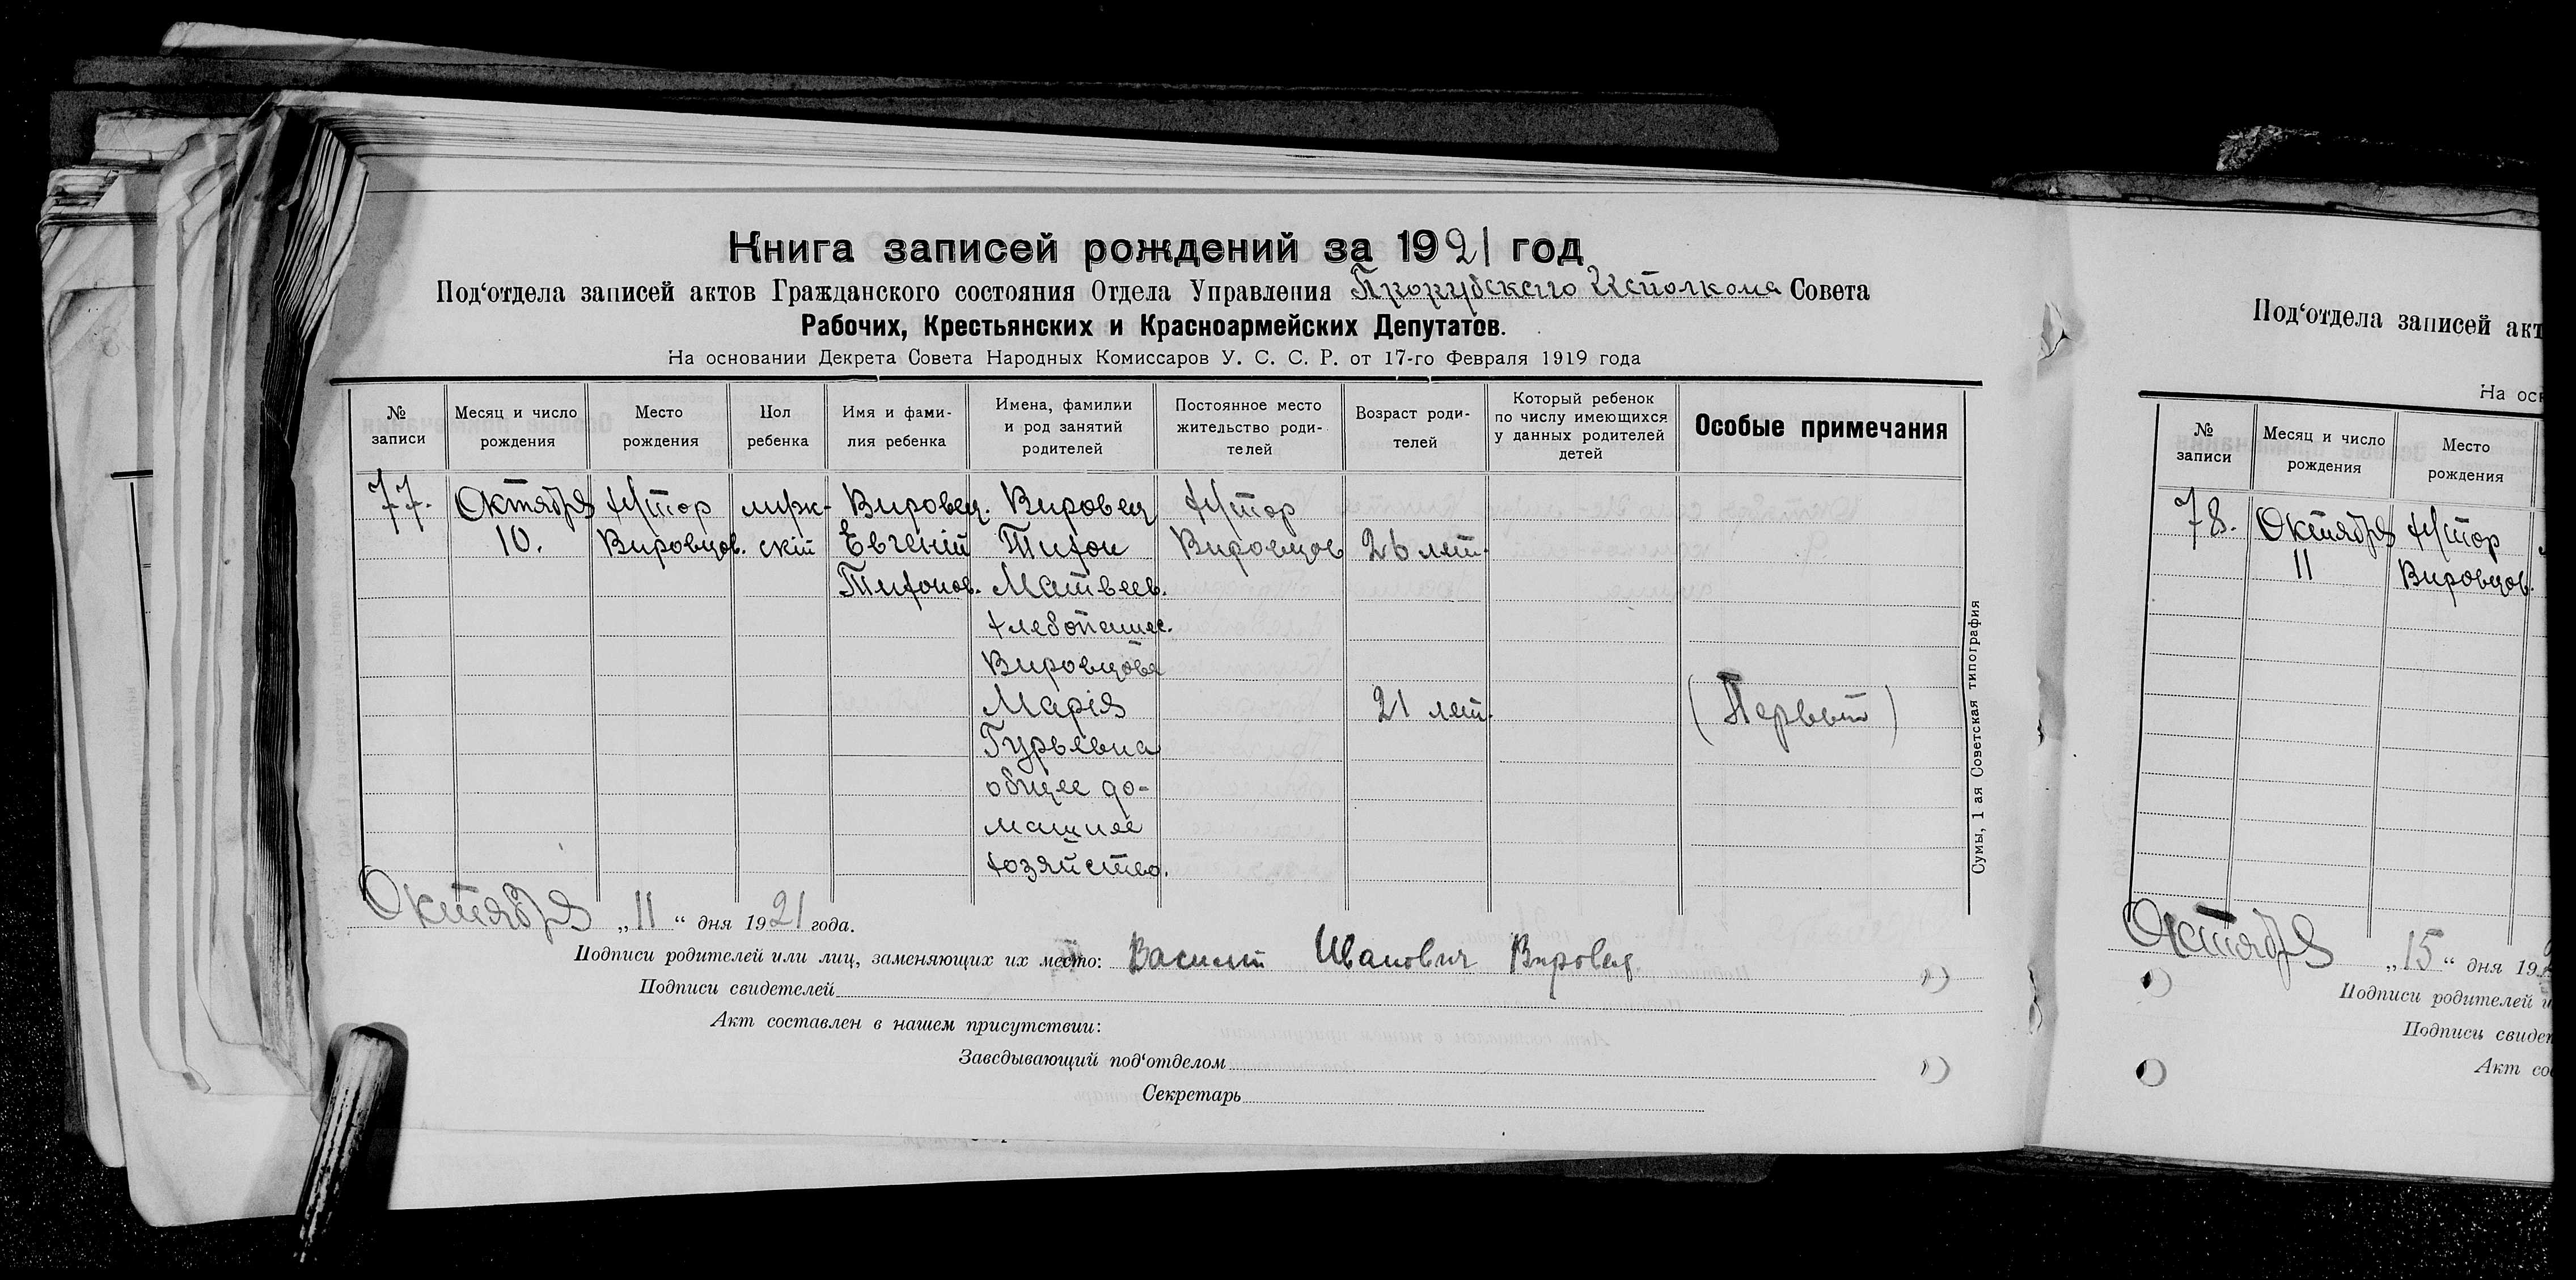 Книга записей рождений за 1921 год
Под‘отдела записей актов Гражданского состояния Отдела Управления Исполкома Совета
Рабочих, Крестьянских и Красноармейских Депутатов.
На основании Декрета Совета Народных Комиссаров У. С. С. Р. от 17-го Февраля 1919 года
№ записи
Месяц и число рождения
Место рождения
Пол ребенка
Имя и фами-
лия ребенка
Имена, фамилии
и род занятий
родителей
Постоянное место
жительство роди-
телей
Возраст роди-
телей
Который ребенок
по числу имеющихся
у данных родителей
детей
Особые примечания
77.
Октября
10.
Хутор
Вировцов.
муж-
скій
Вировец.
Евгеній
Тихонов.
Вировец
Тихон
Матвеев.
хлебопашес.
Вировцова
Марія
Гурьевна
общее до-
машнее
хозяйство.
Хутор
Вировцов
26 лет.
21 лет.
(Первый)
Октября „11“ дня 1921 года.
Подписи родителей или лиц, заменяющих их место: Василий Иванович Вировец
Подписи свидетелей
Акт составлен в нашем присутствии:
Заведывающий под‘отделом
Секретарь
Сумы, 1 ая Советская типография
Под‘отдела записей акт
На осн
№ записи
Месяц и число рождения
Место рождения
78.
Октября
11
Хутор
Вировцов.
Октября „15“ дня 192
Подписи родителей и
Подписи свидет
Акт сос